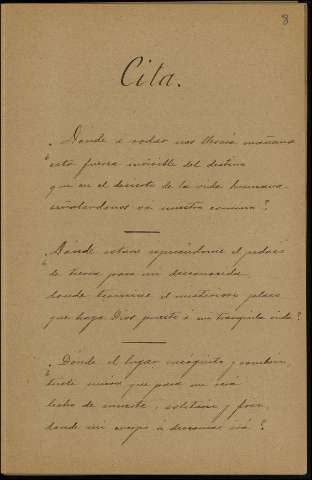 8
Cita.
¿Donde á rodar nos llevará mañana
esta fuerza invisible del destino
que en el desierto de la vida humana
señalandonos va nuestro camino?
¿Dónde estará esperándome el pedazo
de tierra para mí desconocida,
donde termine el misterioso plazo
que haya Dios puesto á mi tranquila vida?
¿Dónde el lugar incógnito y sombrio,
triste que para me será
lecho de muerte, solitario y frio,
donde mi cuerpo á descansar irá?